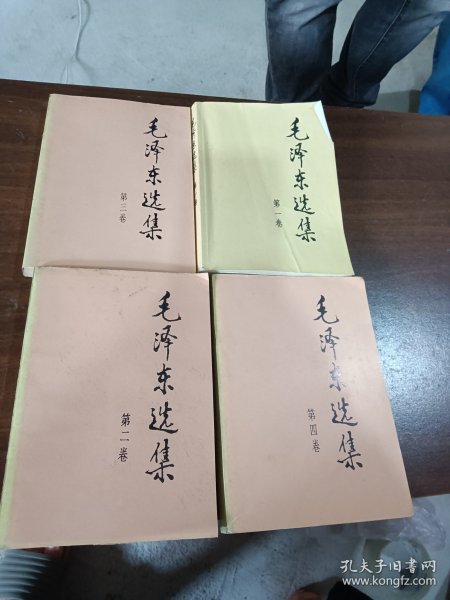 毛泽东选集
第三卷
毛泽东选集
第一卷
毛泽东选集
第二卷
毛泽东选集
第四卷
孔夫子旧书网
www.kongfz.com